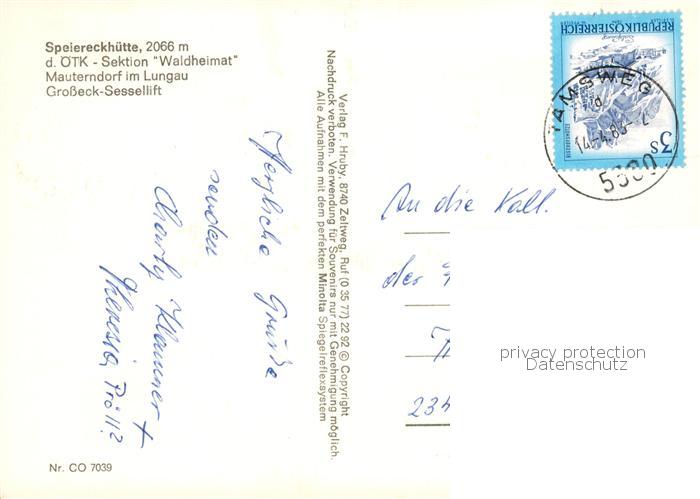 Speiereckhütte, 2066 m
d. ÖTK - Sektion "Waldheimat"
Mauterndorf im Lungau
Großeck-Sessellift
Herzliche Grüße
senden
Charly Klammer +
Theresia Pröll?
Nr. CO 7039
Verlag F. Hruby, 8740 Zeltweg, Ruf (0 35 77) 22 92 © Copyright
Nachdruck verboten. Verwendung für Souvenirs nur mit Genehmigung möglich.
Alle Aufnahmen mit dem perfekten Minolta Spiegelreflexsystem
REPUBLIK ÖSTERREICH
3 S
TAMSWEG
5580
An die Koll.
der
234
privacy protection
Datenschutz